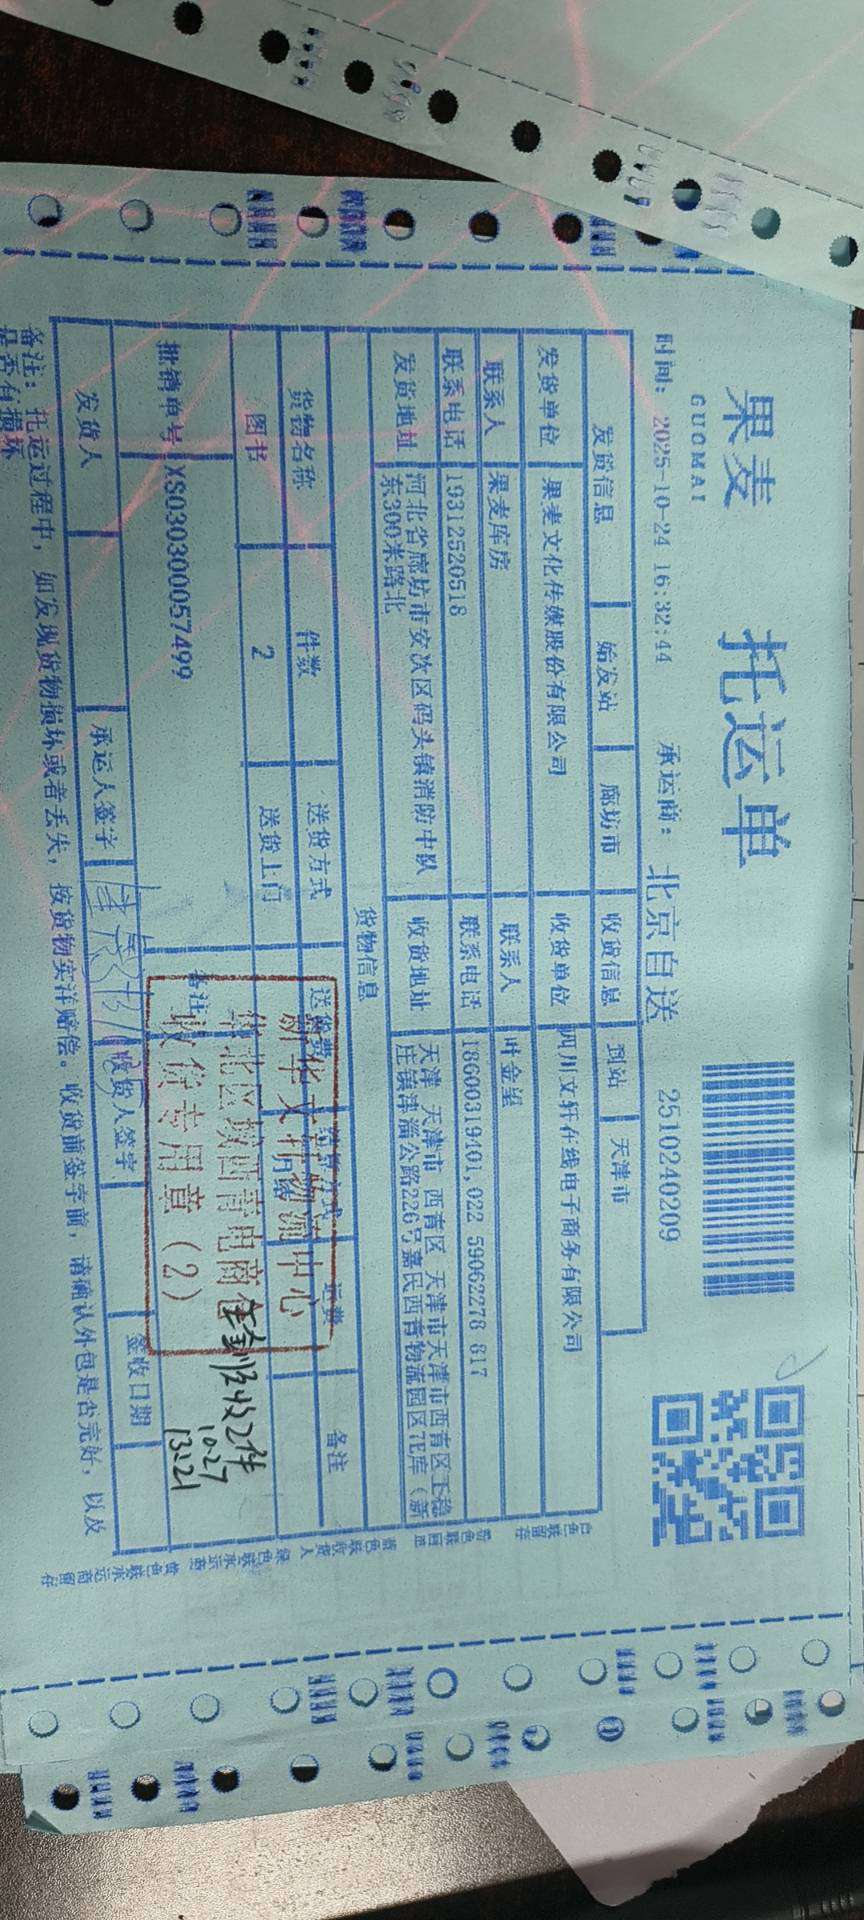 果麦
GUOMAI
托运单
时间: 2025-10-24 16:32:44 承运商: 北京自送 2510240209
发货信息 始发站 廊坊市 收货信息 到站 天津市
发货单位 果麦文化传媒股份有限公司 收货单位 四川文轩在线电子商务有限公司
联系人 果麦库房 联系人 叶金望
联系电话 19312520518 联系电话 18600319401,022 59062278 817
发货地址 河北省廊坊市安次区码头镇消防中队东300米路北 收货地址 天津 天津市 西青区 天津市天津市西青区王稳庄镇津淄公路226号嘉民西青物流园区7E库(新
货物信息
货物名称 件数 送货方式 送货费 付款方式 运费 备注
图书 2 送货上门 月结
批销单号 XS030300057499 备注
新华文轩物流中心
华北区域西青电商仓
收货专用章(2)
收2件
10-27
13:21
发货人 承运人签字 收货人签字 签收日期
备注: 托运过程中, 如发现货物损坏或者丢失, 按货物实洋赔偿。收货前签字前, 请确认外包是否完好, 以及
是否有损坏
白色联留存 粉色联回单 蓝色联收货人 绿色联承运商 黄色联承运商留存